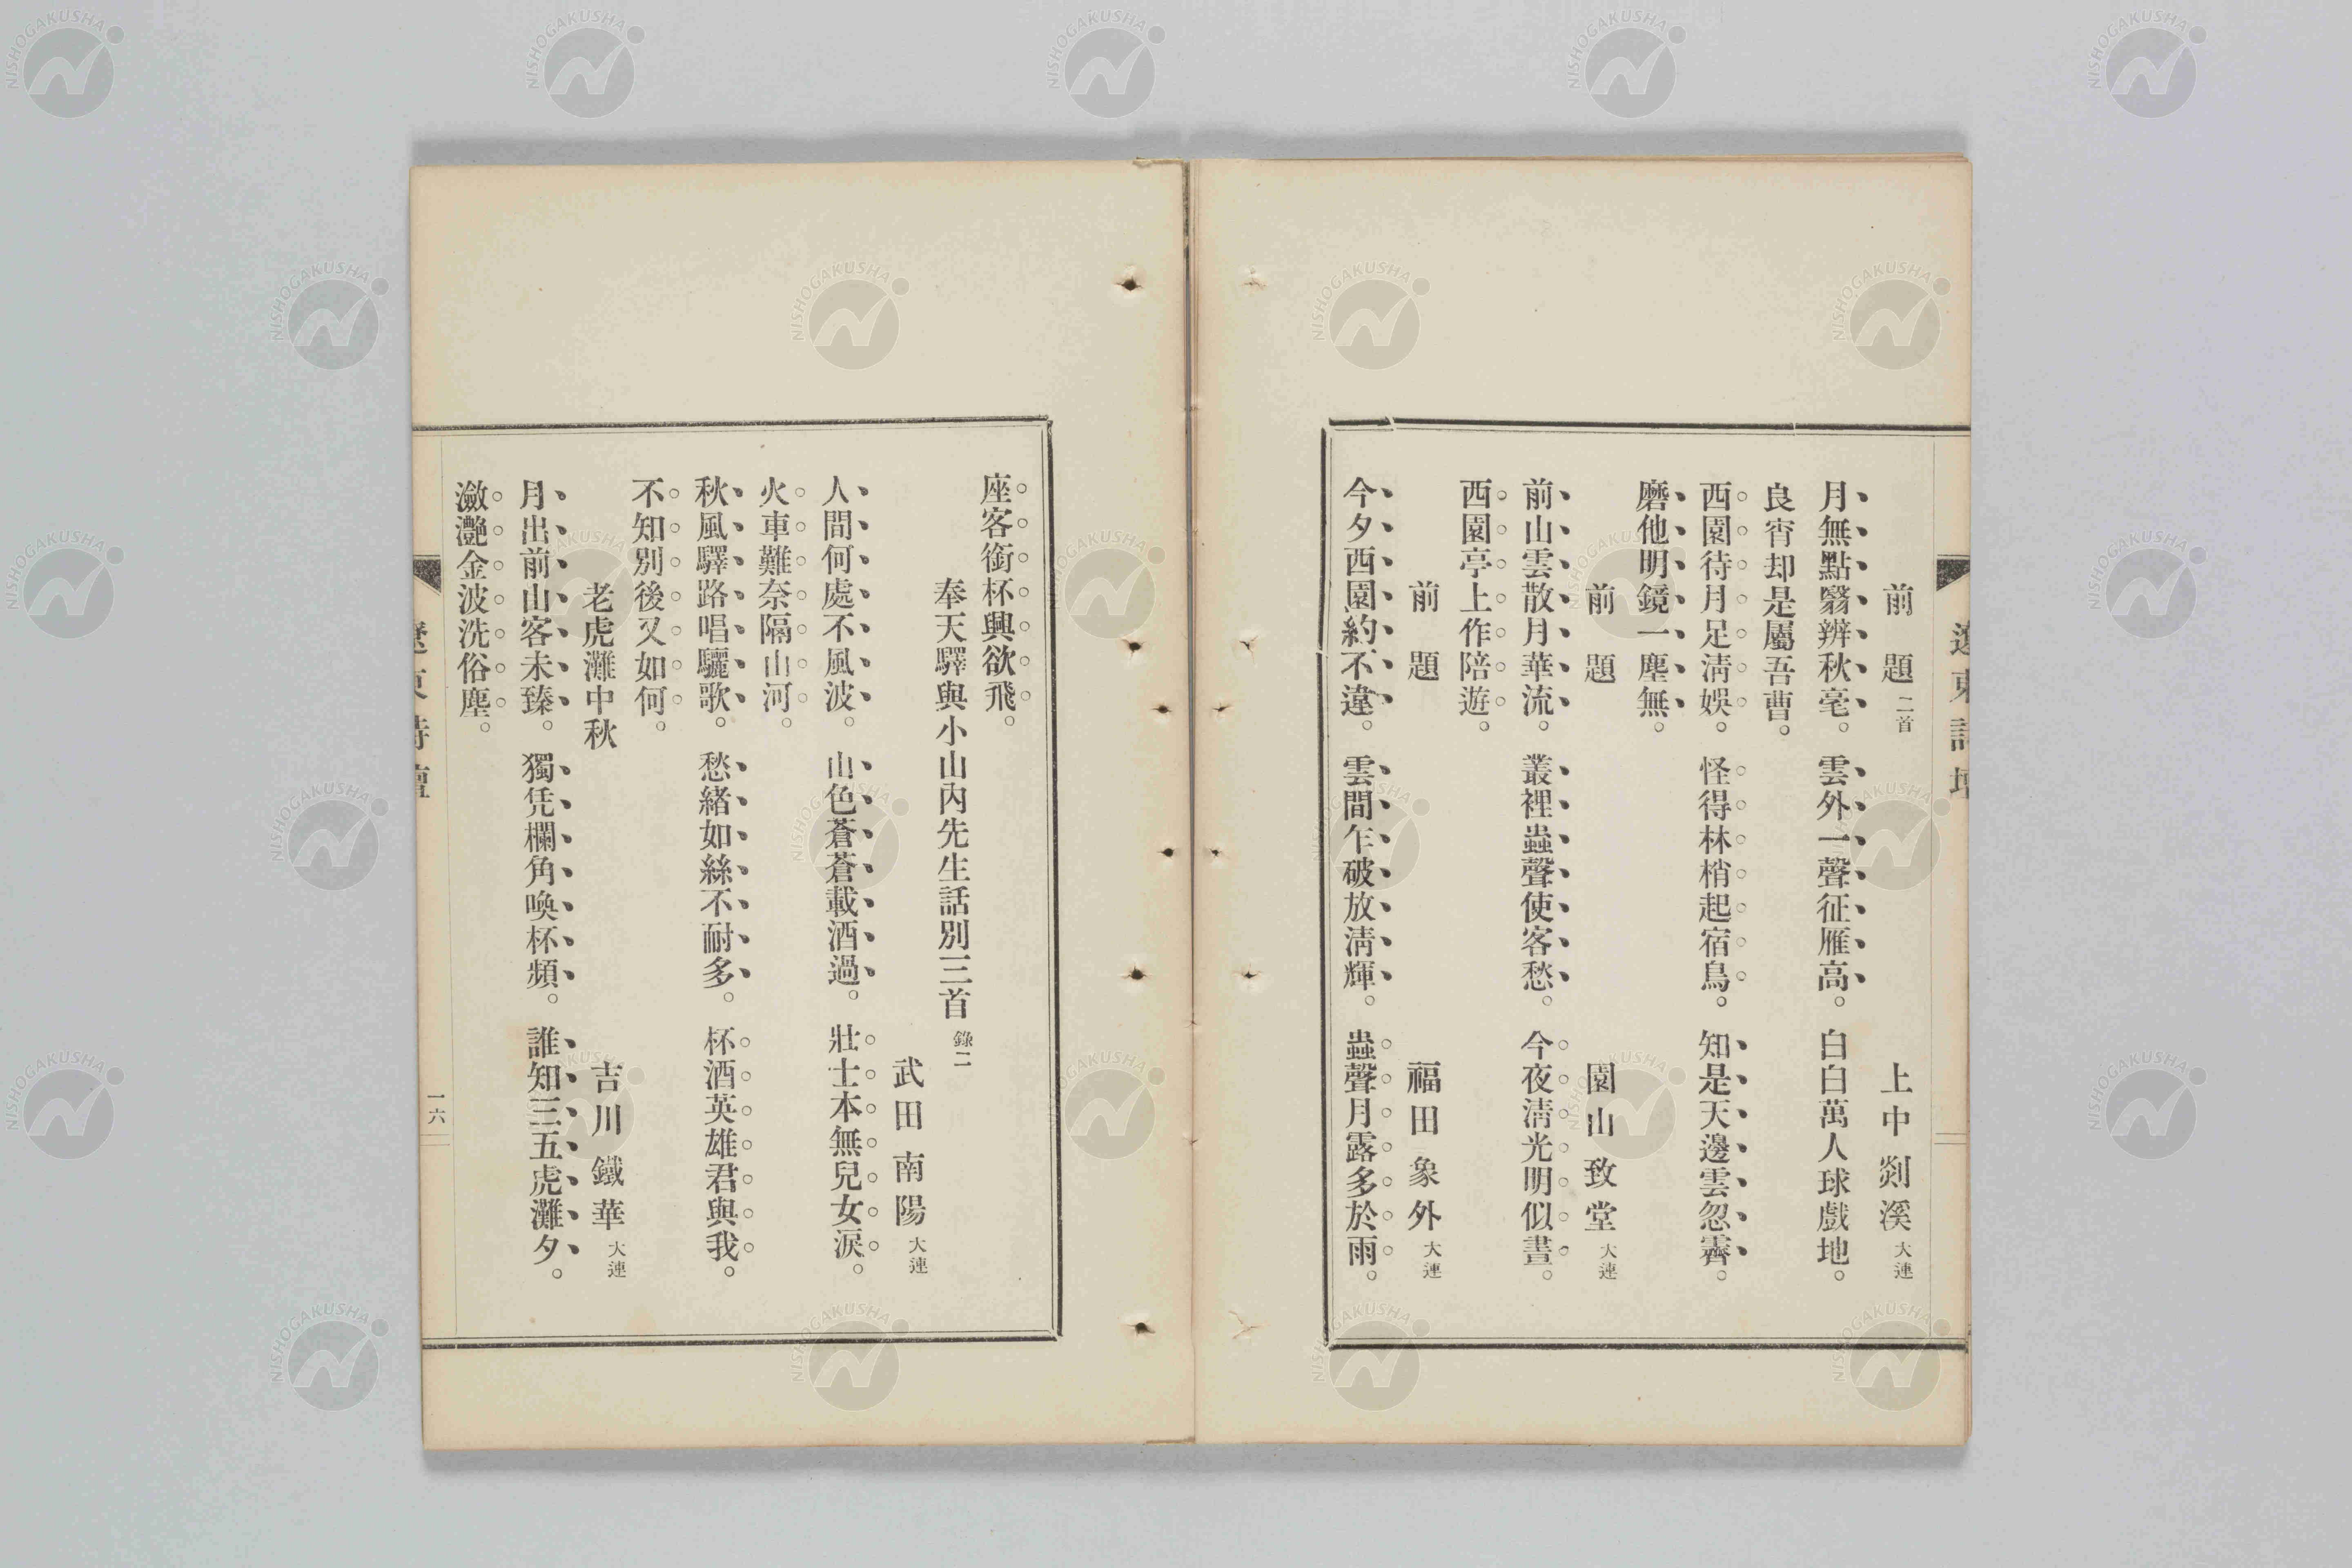 前題 二首 上中剡溪 大連
月無點翳辨秋毫。雲外一聲征雁高。白白萬人球戲地。
良宵却是屬吾曹。
西園待月足淸娛。怪得林梢起宿鳥。知是天邊雲忽霽。
磨他明鏡一塵無。
前題 園山致堂 大連
前山雲散月華流。叢裡蟲聲使客愁。今夜淸光明似晝。
西園亭上作陪遊。
前題 福田象外 大連
今夕西園約不違。雲間乍破放淸輝。蟲聲月露多於雨。
座客銜杯興欲飛。
奉天驛與小山內先生話別三首 錄二
武田南陽 大連
人間何處不風波。山色蒼蒼載酒過。壯士本無兒女淚。
火車難奈隔山河。
秋風驛路唱驪歌。愁緒如絲不耐多。杯酒英雄君與我。
不知別後又如何。
老虎灘中秋 吉川鐵華 大連
月出前山客未臻。獨凭欄角喚杯頻。誰知三五虎灘夕。
瀲灔金波洗俗塵。
遼東詩壇
一六
NISHOGAKUSHA